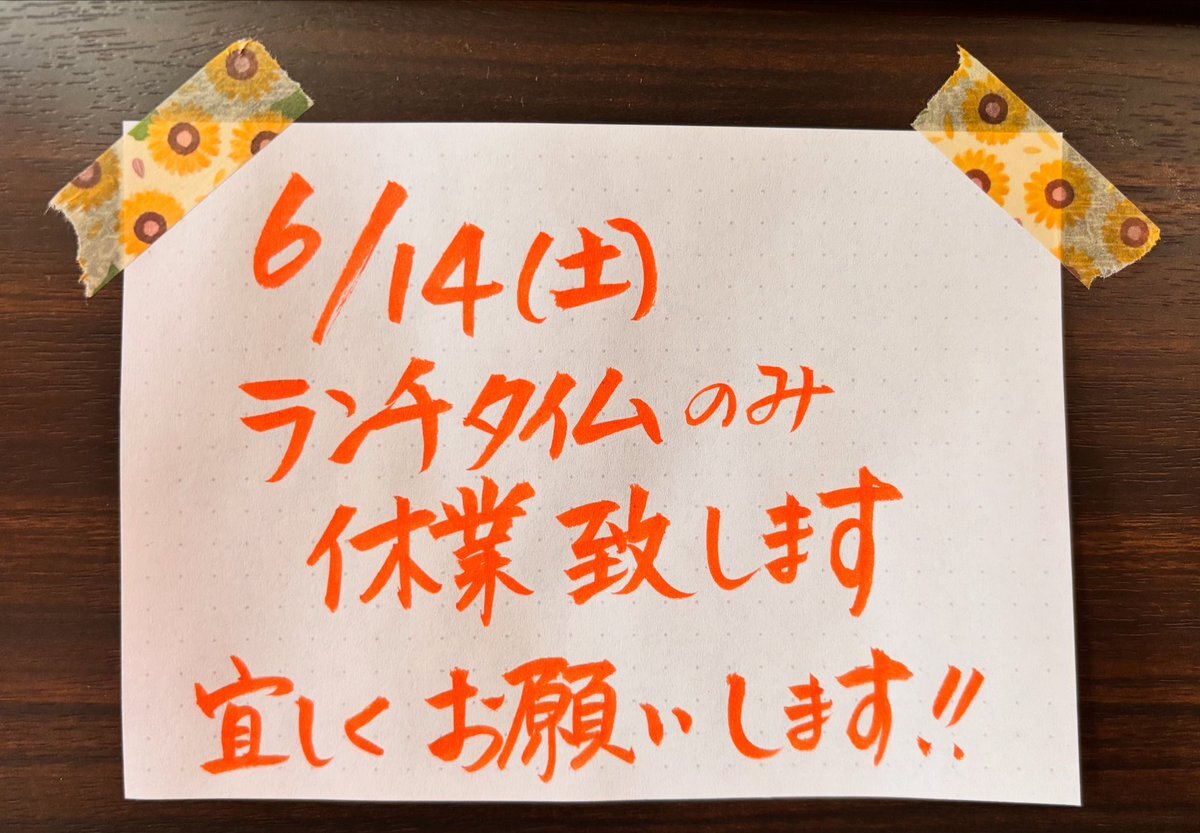 6/14(土)
ランチタイムのみ
休業致します
宜しくお願いします!!